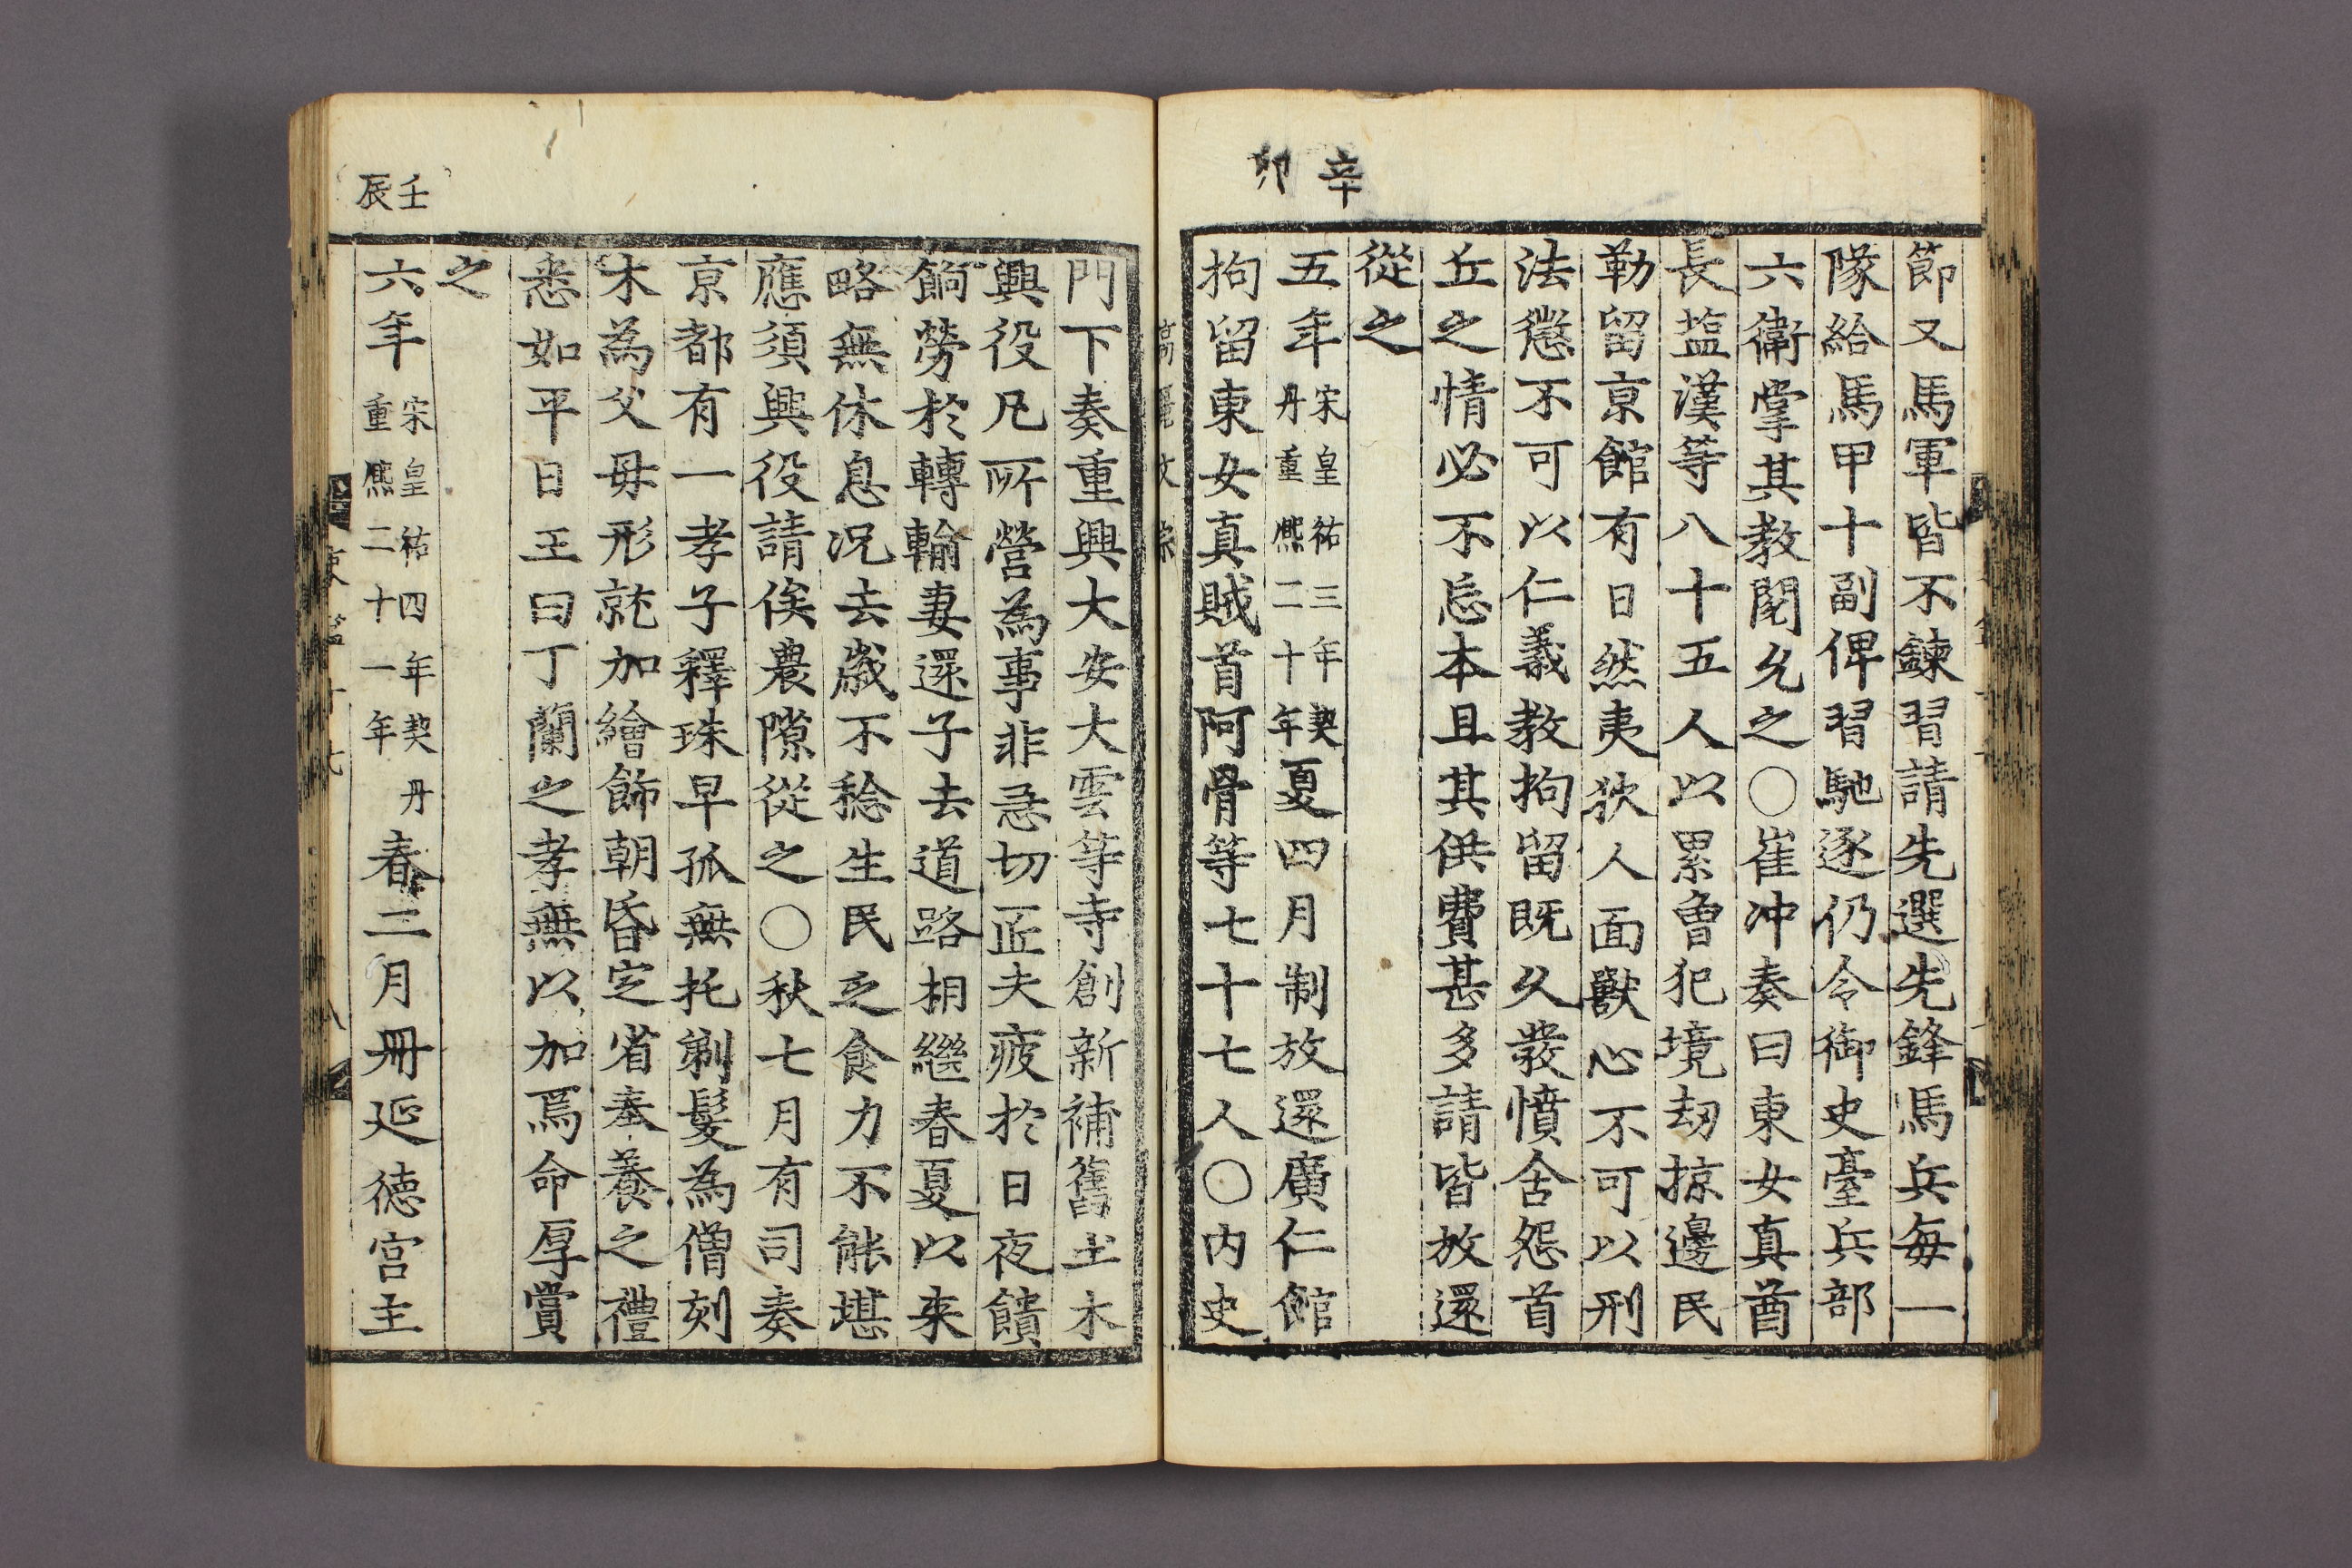 辛卯
節又馬軍皆不鍊習請先選先鋒馬兵每一
隊給馬甲十副俾習馳逐仍令御史臺兵部
六衛掌其教閱允之○崔冲奏曰東女真酋
長塩漢等八十五人以累曾犯境劫掠邊民
勒留京館有日然夷狄人面獸心不可以刑
法懲不可以仁義教拘留既久發憤含怨首
丘之情必不忘本且其供費甚多請皆放還
從之
五年宋皇祐三年契丹重熈二十年夏四月制放還廣仁館
拘留東女真賊首阿骨等七十七人○内史
壬辰
門下奏重興大安大雲等寺創新補舊土木
興役凡所營為事非急切疋夫疲於日夜饋
餉勞於轉輸妻還子去道路相繼春夏以来
略無休息况去歲不稔生民乏食力不能堪
應須興役請俟農隙從之○秋七月有司奏
京都有一孝子釋珠早孤無托剃髮為僧刻
木為父毋形就加繪飾朝昏定省奉養之禮
悉如平日王曰丁蘭之孝無以加焉命厚賞
之
六年宋皇祐四年契丹重熈二十一年春二月冊延德宮主